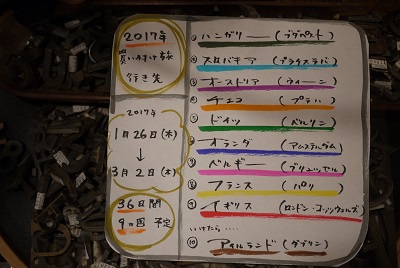 2017年
買い付け旅
行き先
2017年
1月26日(木)
↓
3月2日(木)
36日間
9ヵ国 予定
① ハンガリー ー (ブダペスト)
② スロバキア (ブラチスラバ)
③ オーストリア (ウィーン)
④ チェコ (プラハ)
⑤ ドイツ (ベルリン)
⑥ オランダ (アムステルダム)
⑦ ベルギー (ブリュッセル)
⑧ フランス (パリ)
⑨ イギリス (ロンドン・コッツウォルズ)
いけたら・・・・
⑩ アイルランド (ダブリン)